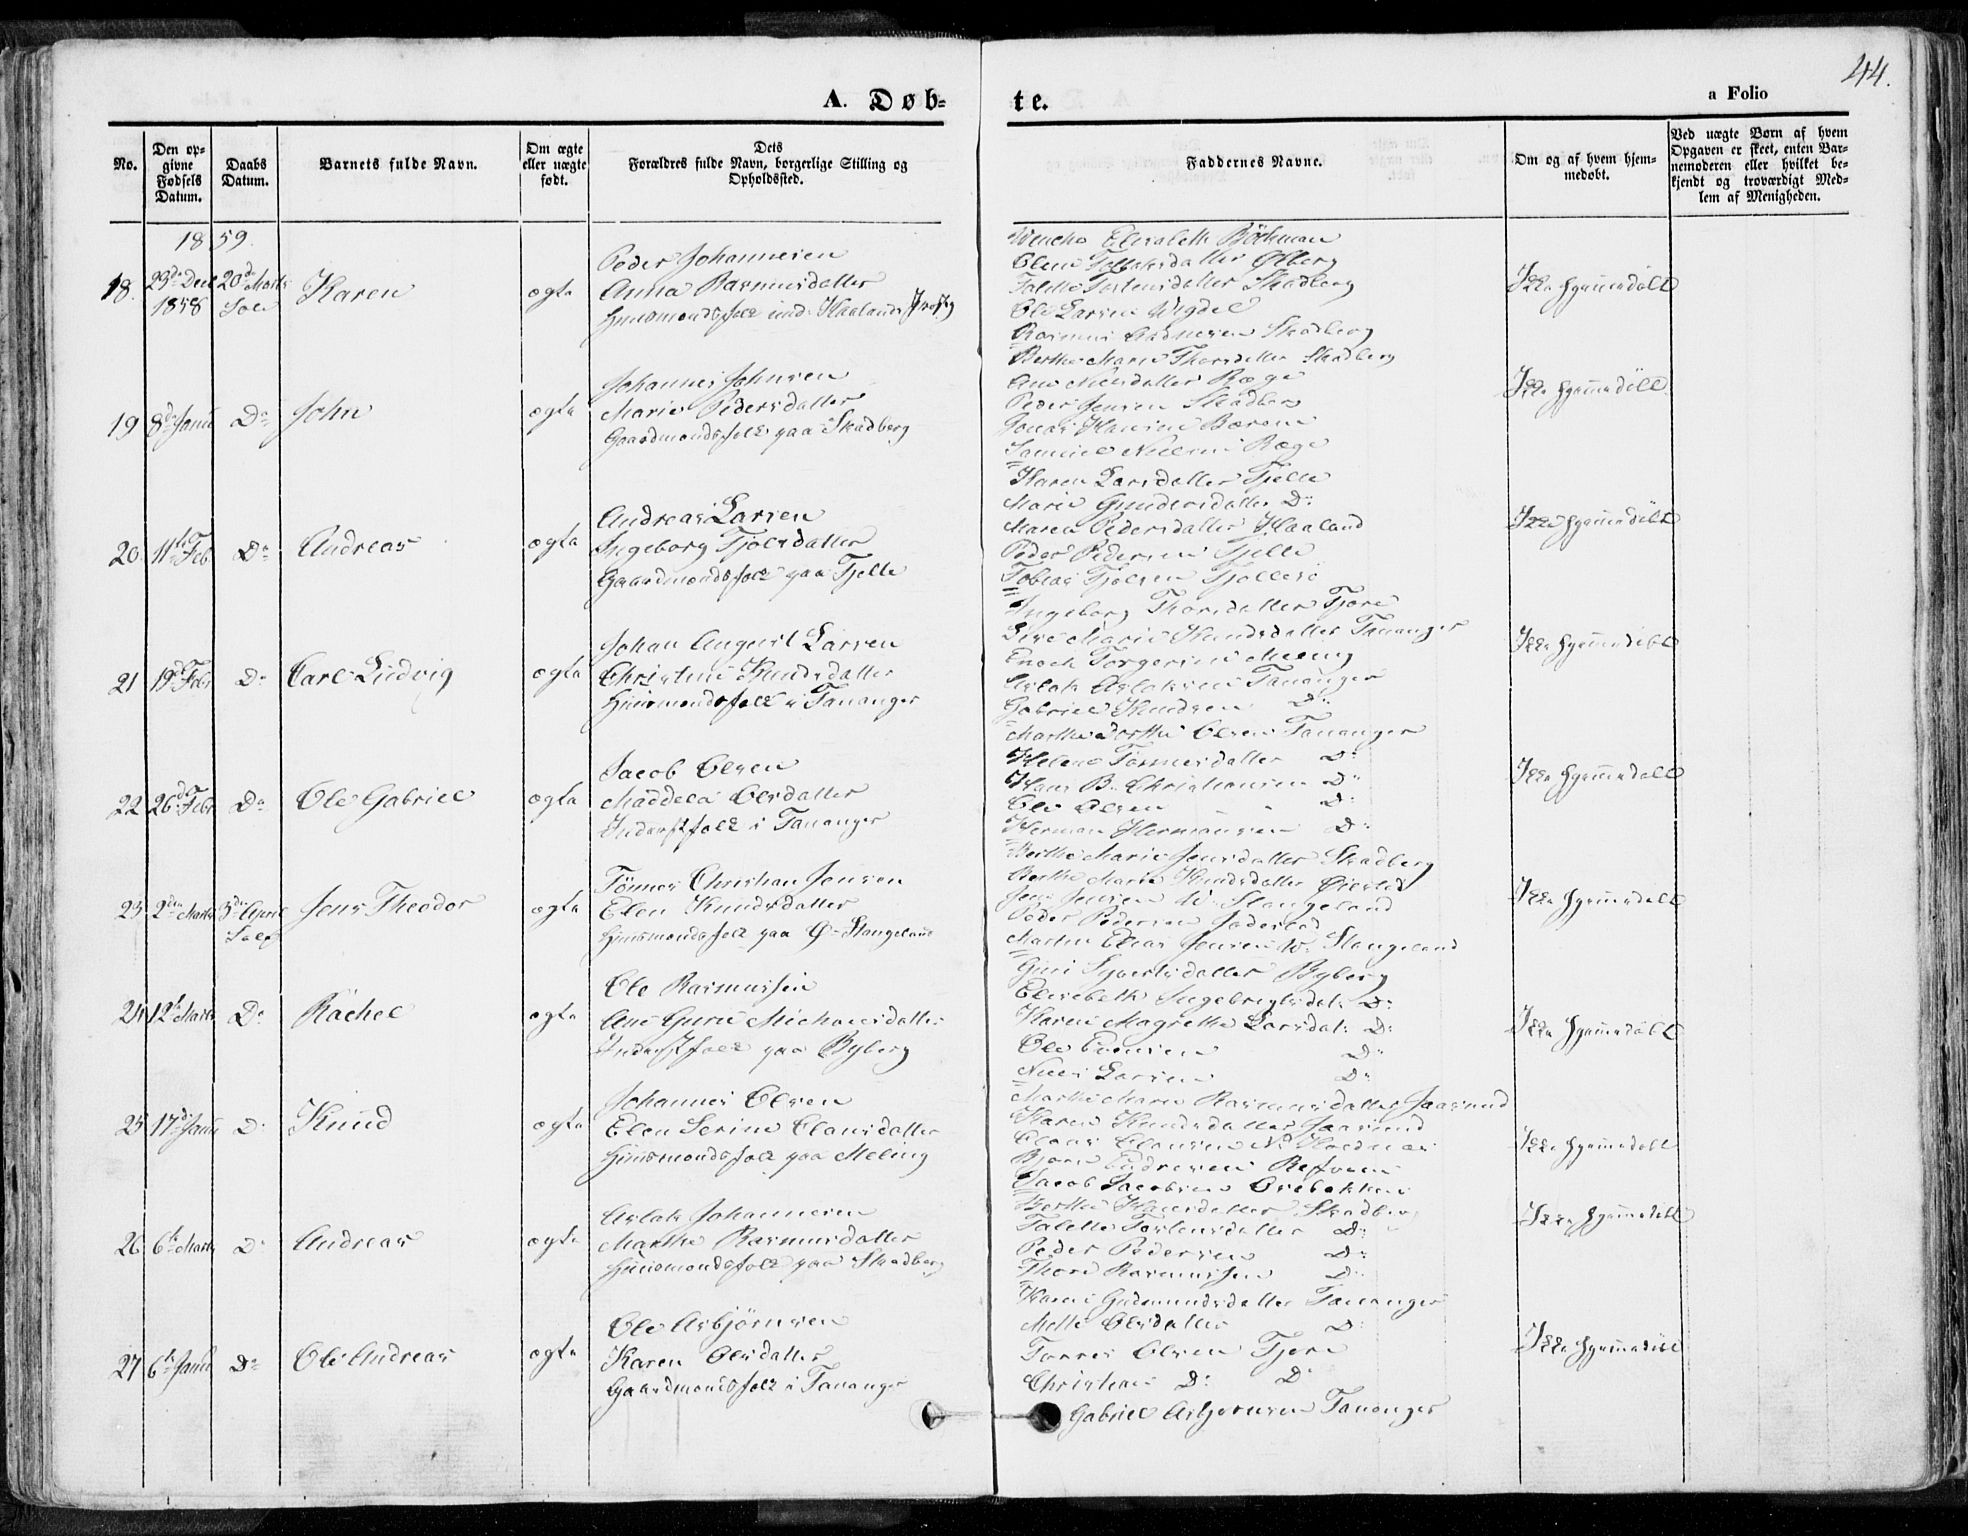 44.
A. Døb=
te.
a Folio
No.
Den op=
givne
Fødsels
Datum.
Daabs
Datum.
Barnets fulde Navn.
Om ægte
eller uægte
født.
Dets
Forældres fulde Navn, borgerlige Stilling og
Opholdssted.
Faddernes Navne.
Om og af hvem hjem=
medøbt.
Ved uægte Børn af hvem
Opgaven er skeet, enten Bar=
nemoderen eller hvilket be=
kjendt og troværdigt Med=
lem af Menigheden.
1859.
18. 23de Decb 1858 20de Marts Sole Karen ægte
Peder Johannesen
Anna Rasmusdatter
Huusmandsfolk Haaland
Elisabeth
Ølberg
Torstensdatter Skadberg
Ole Larsen Wigdel
Rasmus Skadberg
Ikke hjemmedøbt
19 8de Janu Do John ægte
Johannes Johnsen
Marie Pedersdatter
Gaardmandsfolk paa Skadberg
Berthe Marie Thorsdatter Skadberg
Ane Nielsdatter Ræge
Peder Jensen Skadberg
Jonas Hansen
Samuel Nielsen Ræge
Ikke hjemmedøbt
20 11te Feb Do Andreas ægte
Andreas Larsen
Ingeborg Tjølsdatter
Gaardmandsfolk paa Tjelte
Karen Larsdatter Tjelte
Marie Gundersdatter Do
Maren Pedersdatter Haaland
Peder Pedersen Tjelte
Tobias Tjølsen
Ikke hjemmedøbt
21 19de Febr Do Carl Ludvig ægte
Johan August Larsen
Christine Knudsdatter
Huusmandsfolk i Tananger
Ingeborg Thorsdatter Tjore
Marie Knudsdatter Tananger
Enoch Torgersen Meling
Aslak Aslaksen Tananger
Gabriel Knudsen Do
Ikke hjemmedøbt
22 26de Febr Do Ole Gabriel ægte
Jacob Olsen
Olsdatter
Inderstfolk i Tananger
Marthe Dorthe Olsen Tananger
Helene Tønnesdatter Do
Hans B. Christiansen Do
Ole Olsen Do
Herman Hermansen Do
Ikke hjemmedøbt
23 2den Marts 3die April Sole Jens Theodor ægte
Tönnes Christian Jensen
Elen Knudsdatter
Huusmandsfolk paa Ø. Stangeland
Berthe Marie Jensdatter Skadberg
Berthe Marie Knudsdatter
Jens Jensen W. Stangeland
Peder Pedersen
Martin Elias Jensen W. Stangeland
Ikke hjemmedøbt
24 12te Marts Do Rachel ægte
Ole Rasmussen
Ane Guri Michaelsdatter
Inderstfolk paa Byberg
Guri Syvertsdatter Byberg
Elisebeth Ingebrigtsdat: Do
Karen Magrethe Larsdat: Do
Ole Do
Niels Larsen Do
Ikke hjemmedøbt
25 17de Janu Do Knud ægte
Johannes Olsen
Elen Serine Clausdatter
Huusmandsfolk paa Meling
Marthe Marie Rasmusdatter Jaasund
Karen Knudsdatter Jaasund
Claus Clausen
Bjørn
Jacob Jacobsen
Ikke hjemmedøbt
26 6te Marts Do Andreas ægte
Aslak Johannesen
Marthe Rasmusdatter
Huusmandsfolk paa Skadberg
Berthe Skadberg
Torstensdatter Do
Peder Pedersen Do
Thore Rasmussen Do
Ikke hjemmedøbt
27 6te Janu Do Ole Andreas ægte
Ole Asbjörnsen
Karen Olsdatter
Gaardmandsfolk i Tananger
Karen Gudmundsdatter Tananger
Mette Olsdatter Do
Torres Olsen Tjore
Christian Do Do
Gabriel Asbjornsen Tananger
Ikke hjemmedøbt